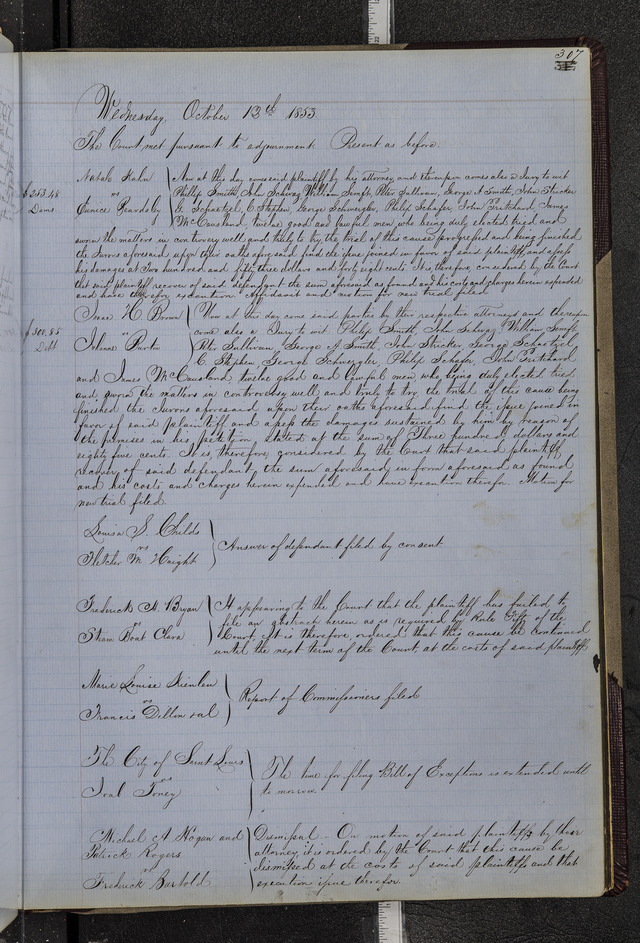 307
Wednesday, October 12th 1853
The Court met pursuant to adjournment. Present as before.
Kahn
vs
Eunice Peardsly
$253.48
Dams
Now at this day comes said plaintiff by his attorney and thereupon comes also a Jury to wit
Phillip Smith, John Schwag, William Sono, Peter Sullivan, George N. Smith, John Stricker
G. Schaetzel, C. Stephen, George Schneegle, Philip Schafer, John Pritchard, James
McCausland, twelve good and lawful men who being duly elected tried and
sworn the matters in controversy well and truly to try the trial of this cause progressed and being finished
the Jurors aforesaid upon their oaths aforesaid find the issue joined in favor of said plaintiff and assess
his damages at Two hundred and fifty three dollars and forty eight cents. It is, therefore, considered by the Court
that said plaintiff recover of said defendant the sum aforesaid as found and his costs and charges herein expended
and have therefor execution. Affidavit and motion for new trial filed
Isaac H. Brown
vs
Burton
$300.85
Debt
Now at this day come said parties by their respective attorneys and thereupon
come also a Jury to wit Philip Smith, John Schwag, William
Peter Sullivan George N. Smith, John Stricker George Schaetzel
C. Stephen George Schneegle Philip Schafer John Pritchard
and James McCausland, twelve good and lawful men who being duly elected tried
and sworn the matters in controversy well and truly to try the trial of this cause being
finished the Jurors aforesaid upon their oaths aforesaid find the issue joined in
favor of said plaintiff and assess the damages sustained by him by reason of
the premises in his petition stated at the sum of Three hundred dollars and
eighty five cents. It is, therefore, considered by the Court that said plaintiff
recover of said defendant, the sum aforesaid in form aforesaid as found
and his costs and charges herein expended and have execution therefor. Motion for
new trial filed.
Louisa S. Childs
vs
Fletcher M. Haight
Answer of defendant filed by consent
Frederick M. Bryan
vs
Steam Boat Clara
It appearing to the Court that the plaintiff has failed to
file an abstract herein as is required by Rule Fifty of the
Court it is therefore, ordered that this cause be continued
until the next term of the Court, at the costs of said plaintiff.
Marie Louise
vs
Francis Dillon et al
Report of Commissioners filed
The City of Saint Louis
vs
Toney
The time for filing Bill of Exceptions is extended until
to morrow.
Michael A. Hogan and
Patrick Rogers
vs
Frederick Barhold
Dismissal. On motion of said plaintiffs by their
attorney, it is ordered by the Court that this cause be
dismissed at the costs of said plaintiffs and that
execution issue therefor.